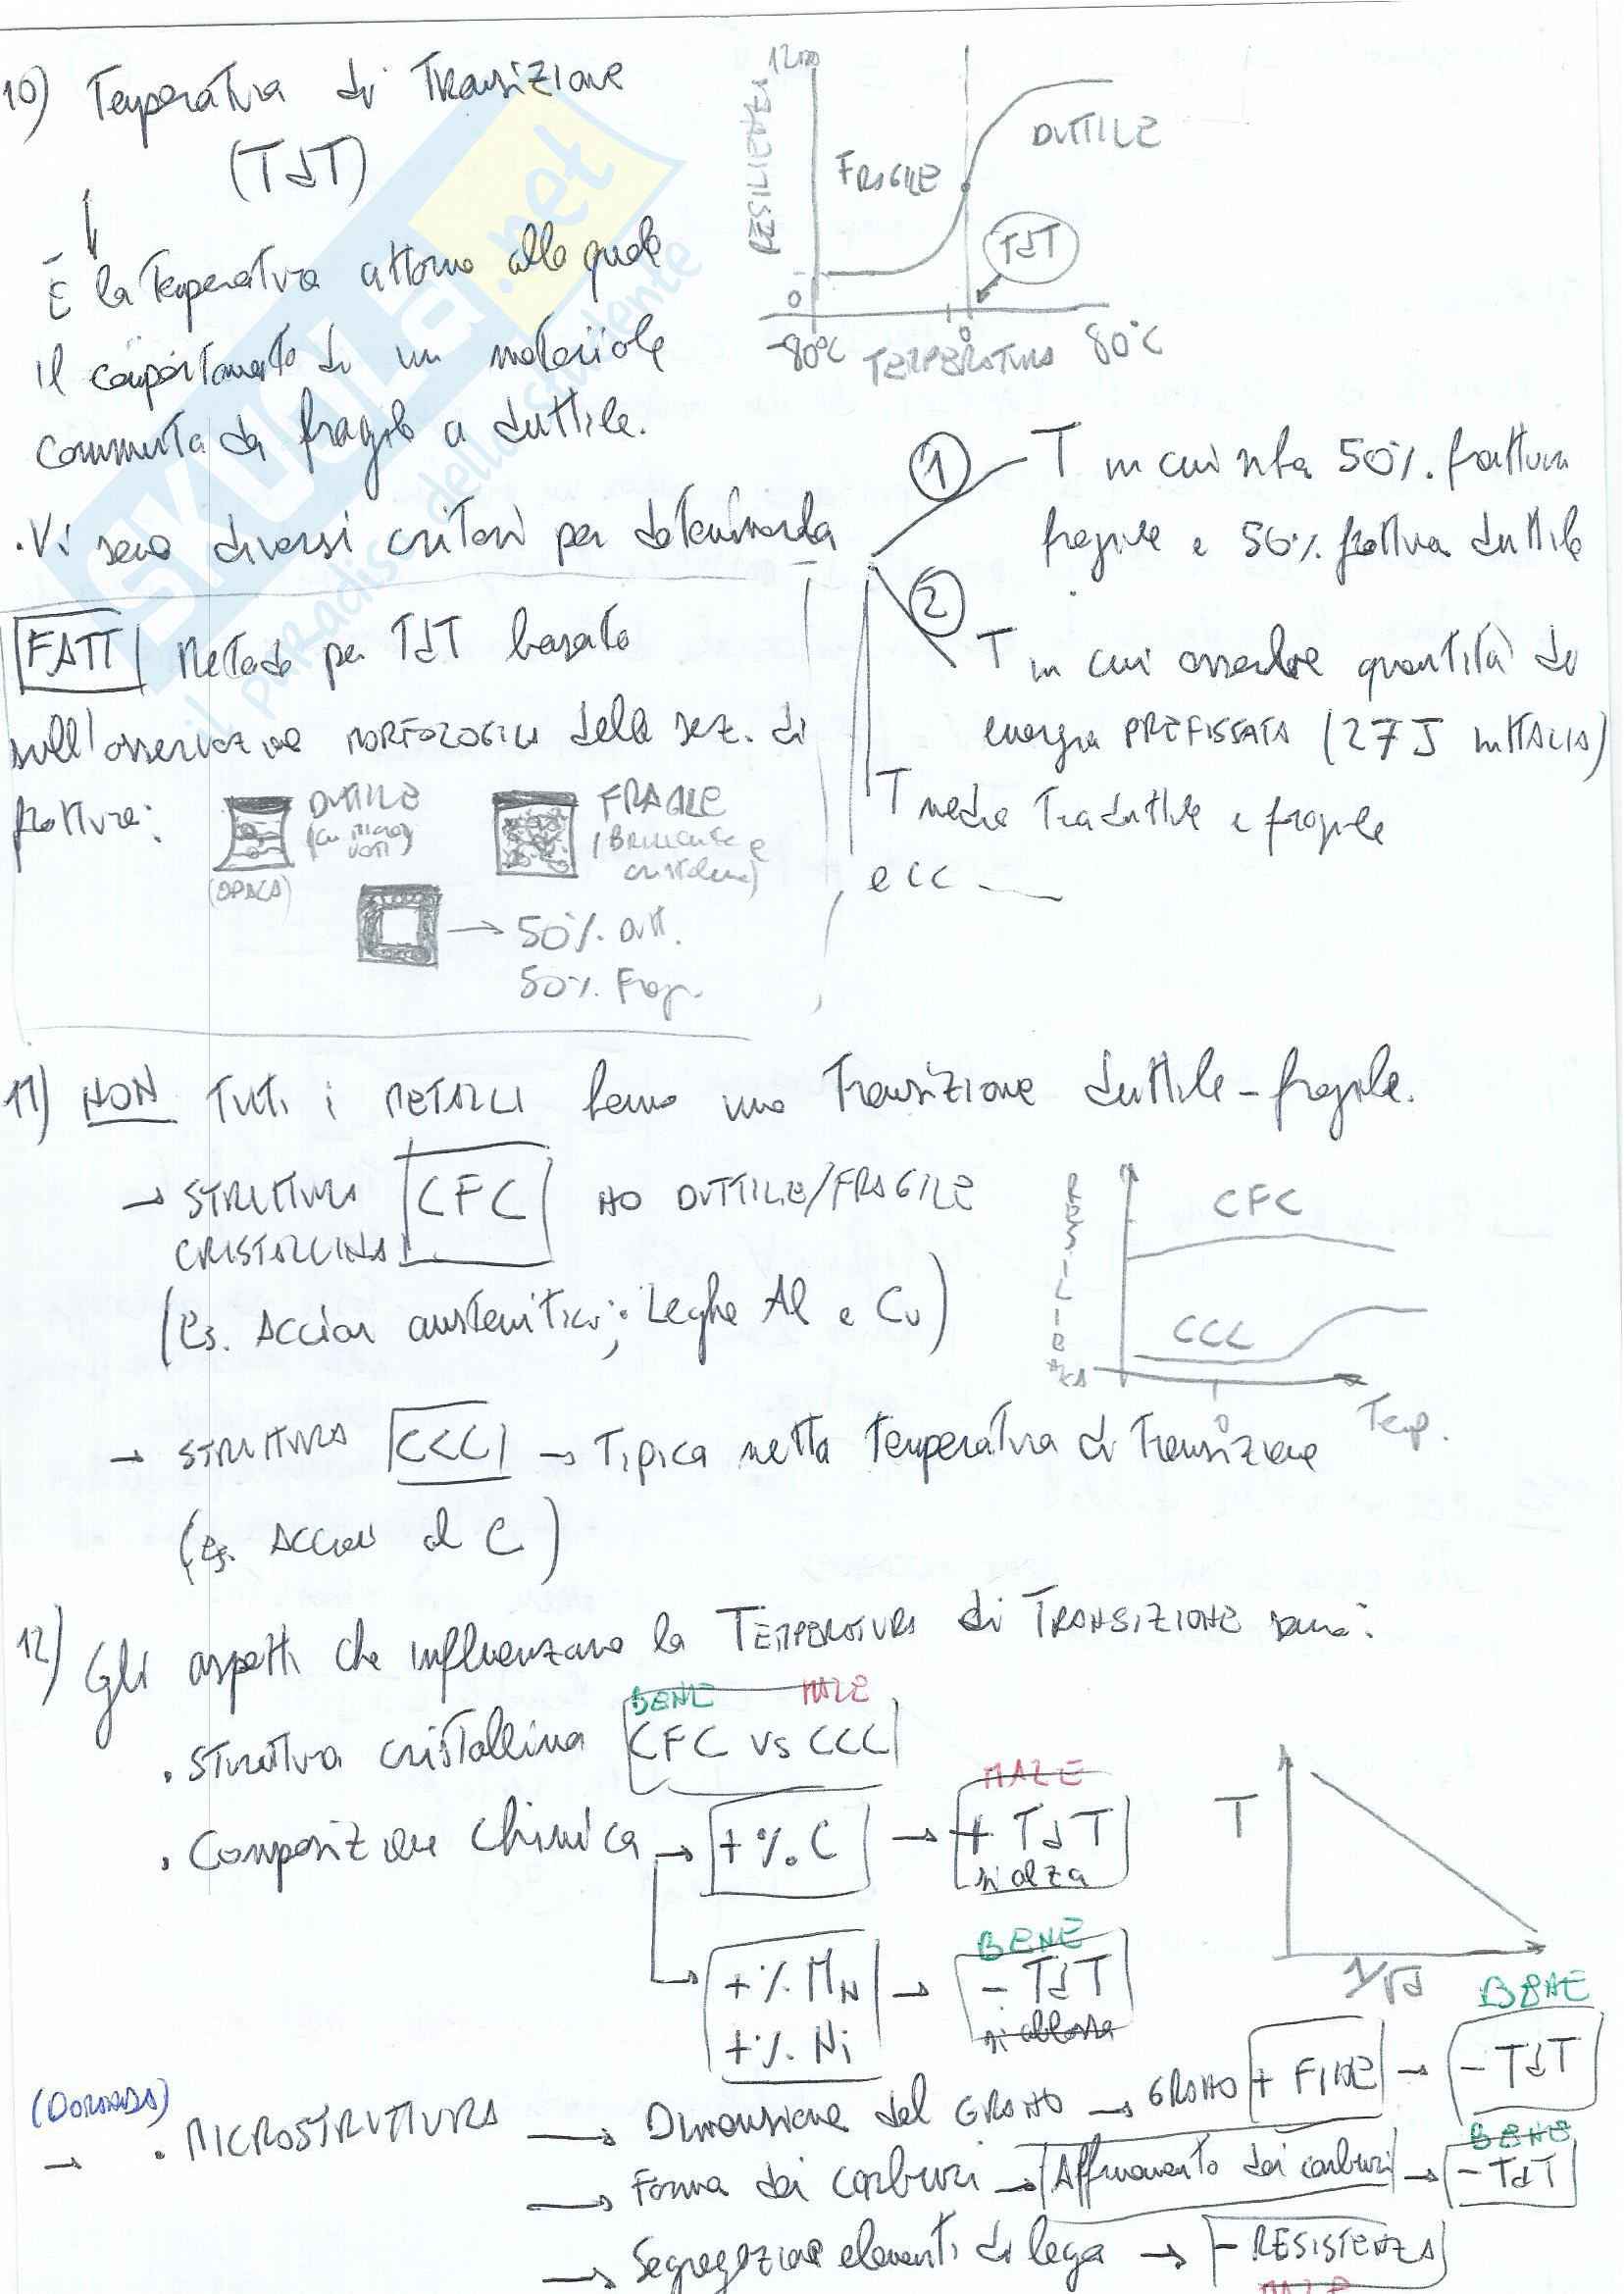 10) Temperatura di Transizione
(TdT)
È la Temperatura attorno alla quale
il comportamento di un materiale
commuta da fragile a duttile.
• Vi sono diversi criteri per determinarla
RESILIENZA
1200
FRAGILE
DUTTILE
TdT
0
-80°C
0
80°C
TEMPERATURA
1
T in cui si ha 50% frattura
fragile e 50% frattura duttile
2
T in cui assorbe quantità di
energia PREFISSATA (27J in ITALIA)
T media Tra duttile e fragile
ecc
FATT Metodo per TdT basato
sull'osservazione MORFOLOGICA della sez. di
frattura:
DUTTILE
(OPACA)
FRAGILE
(BRILLANTE e
cristallina)
→ 50% Dutt.
50% Frag.
11) NON TUTTI i METALLI hanno una Transizione duttile-fragile.
→ STRUTTURA CFC NO DUTTILE/FRAGILE
CRISTALLINA
(Es. Acciai austenitici; Leghe Al e Cu)
CFC
CCC
0
Temp.
→ STRUTTURA CCC → Tipica netta Temperatura di Transizione
(Es. Acciai al C)
12) Gli aspetti che influenzano la TEMPERATURA di TRANSIZIONE sono:
BENE MALE
• Struttura cristallina CFC vs CCC
MALE
• Composizione chimica → +%C → + TdT
si alza
BENE
→ +%Mn → - TdT
+%Ni si abbassa
T
1/√d
BENE
(DOMANDA)
→ • MICROSTRUTTURA → Dimensione del GRANO → GRANO + FINE → - TdT
BENE
→ Forma dei carburi → Affinamento dei carburi → - TdT
→ Segregazione elementi di lega → - RESISTENZA
MALE
SKUOLA.net
il paradiso dello studente